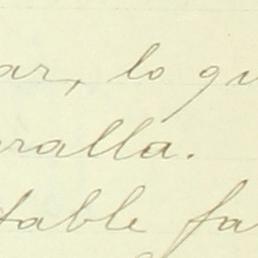 ar, lo qu
ralla.
table fa